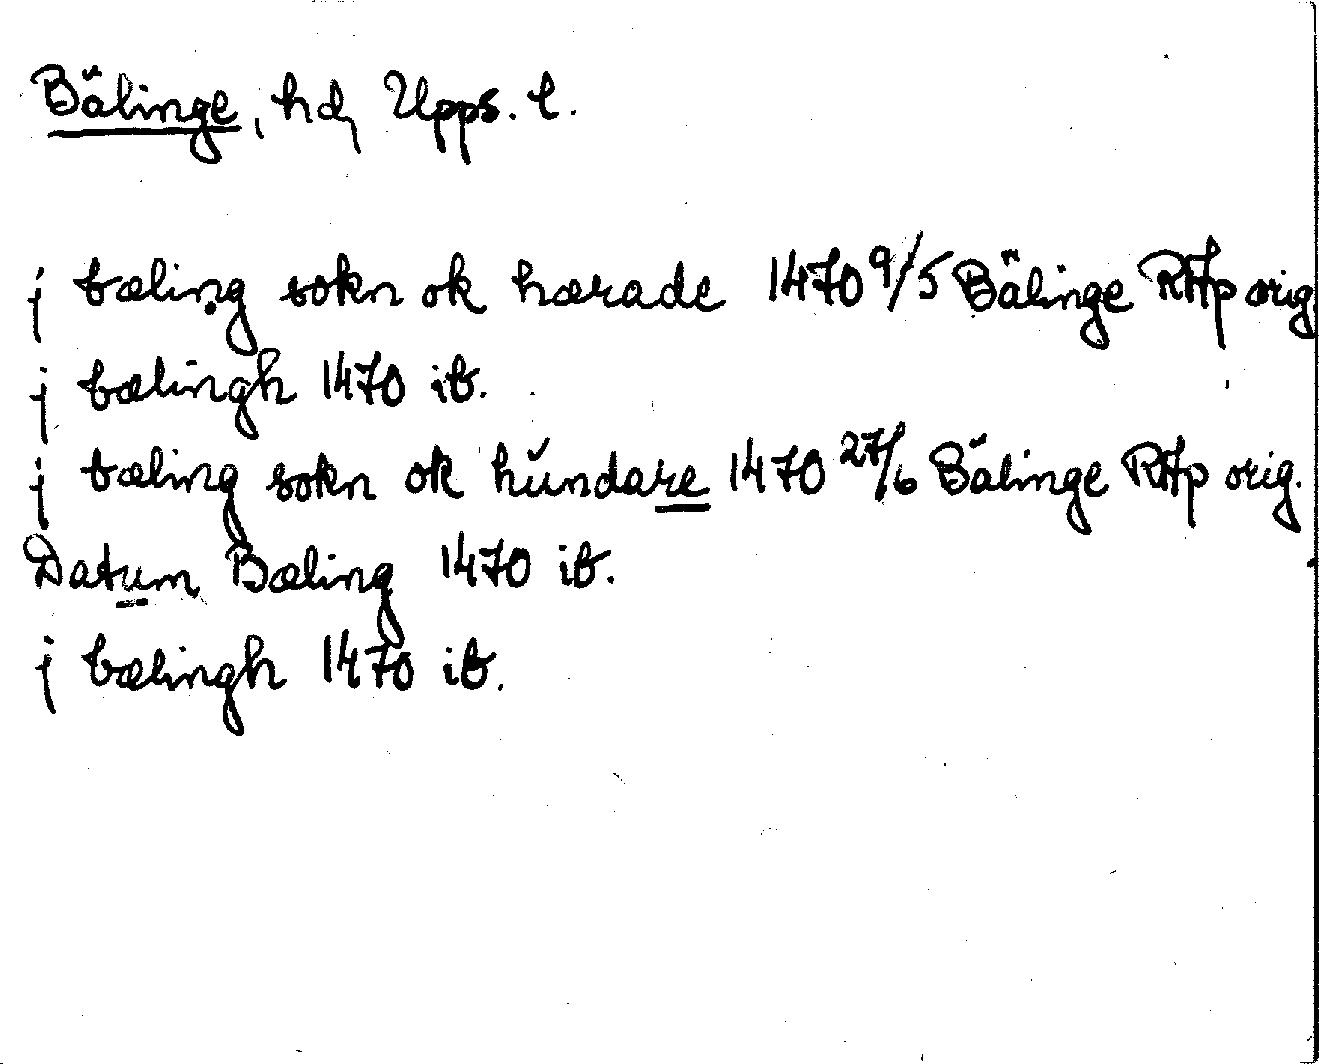 Bälinge, hd, Upps. l.
j bæling sokn ok hærade 1470 9/5 Bälinge RAp orig
j bælingh 1470 ib.
j bæling sokn ok hŭndare 1470 27/6 Bälinge RAp orig.
Datum Bæling 1470 ib.
j bælingh 1470 ib.